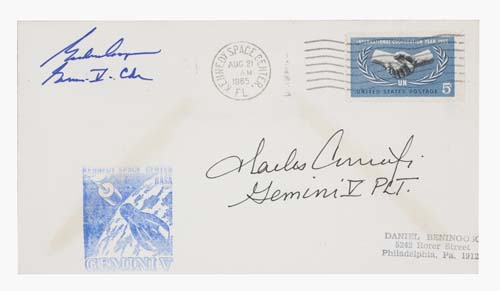 Gordon Cooper
Gemini-V-Cdr
KENNEDY SPACE CENTER,
AUG 21
AM
1965
FL
INTERNATIONAL COOPERATION YEAR 1965
UN
UNITED STATES POSTAGE 5¢
Charles Conrad Jr.
Gemini V PLT.
KENNEDY SPACE CENTER
NASA
GEMINI V
DANIEL
5242 Rorer Street
Philadelphia, Pa. 1912